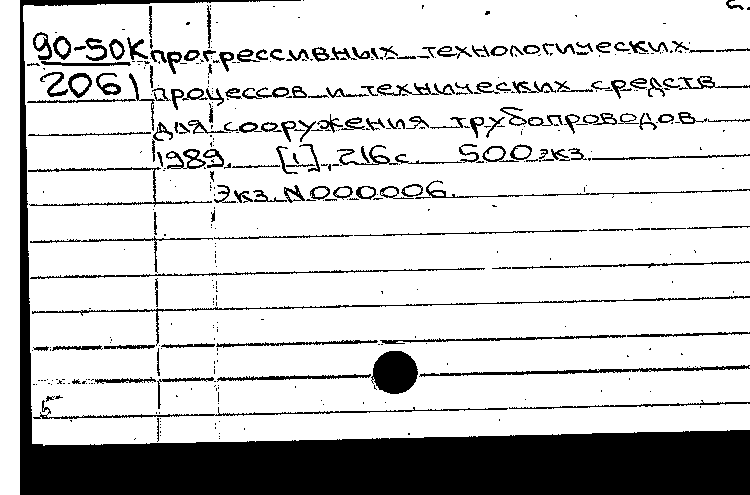 90-50К прогрессивных технологических
2061 процессов и технических средств
для сооружения трубопроводов
1989. [1], 216с. 500 экз
Экз. N000006.
5